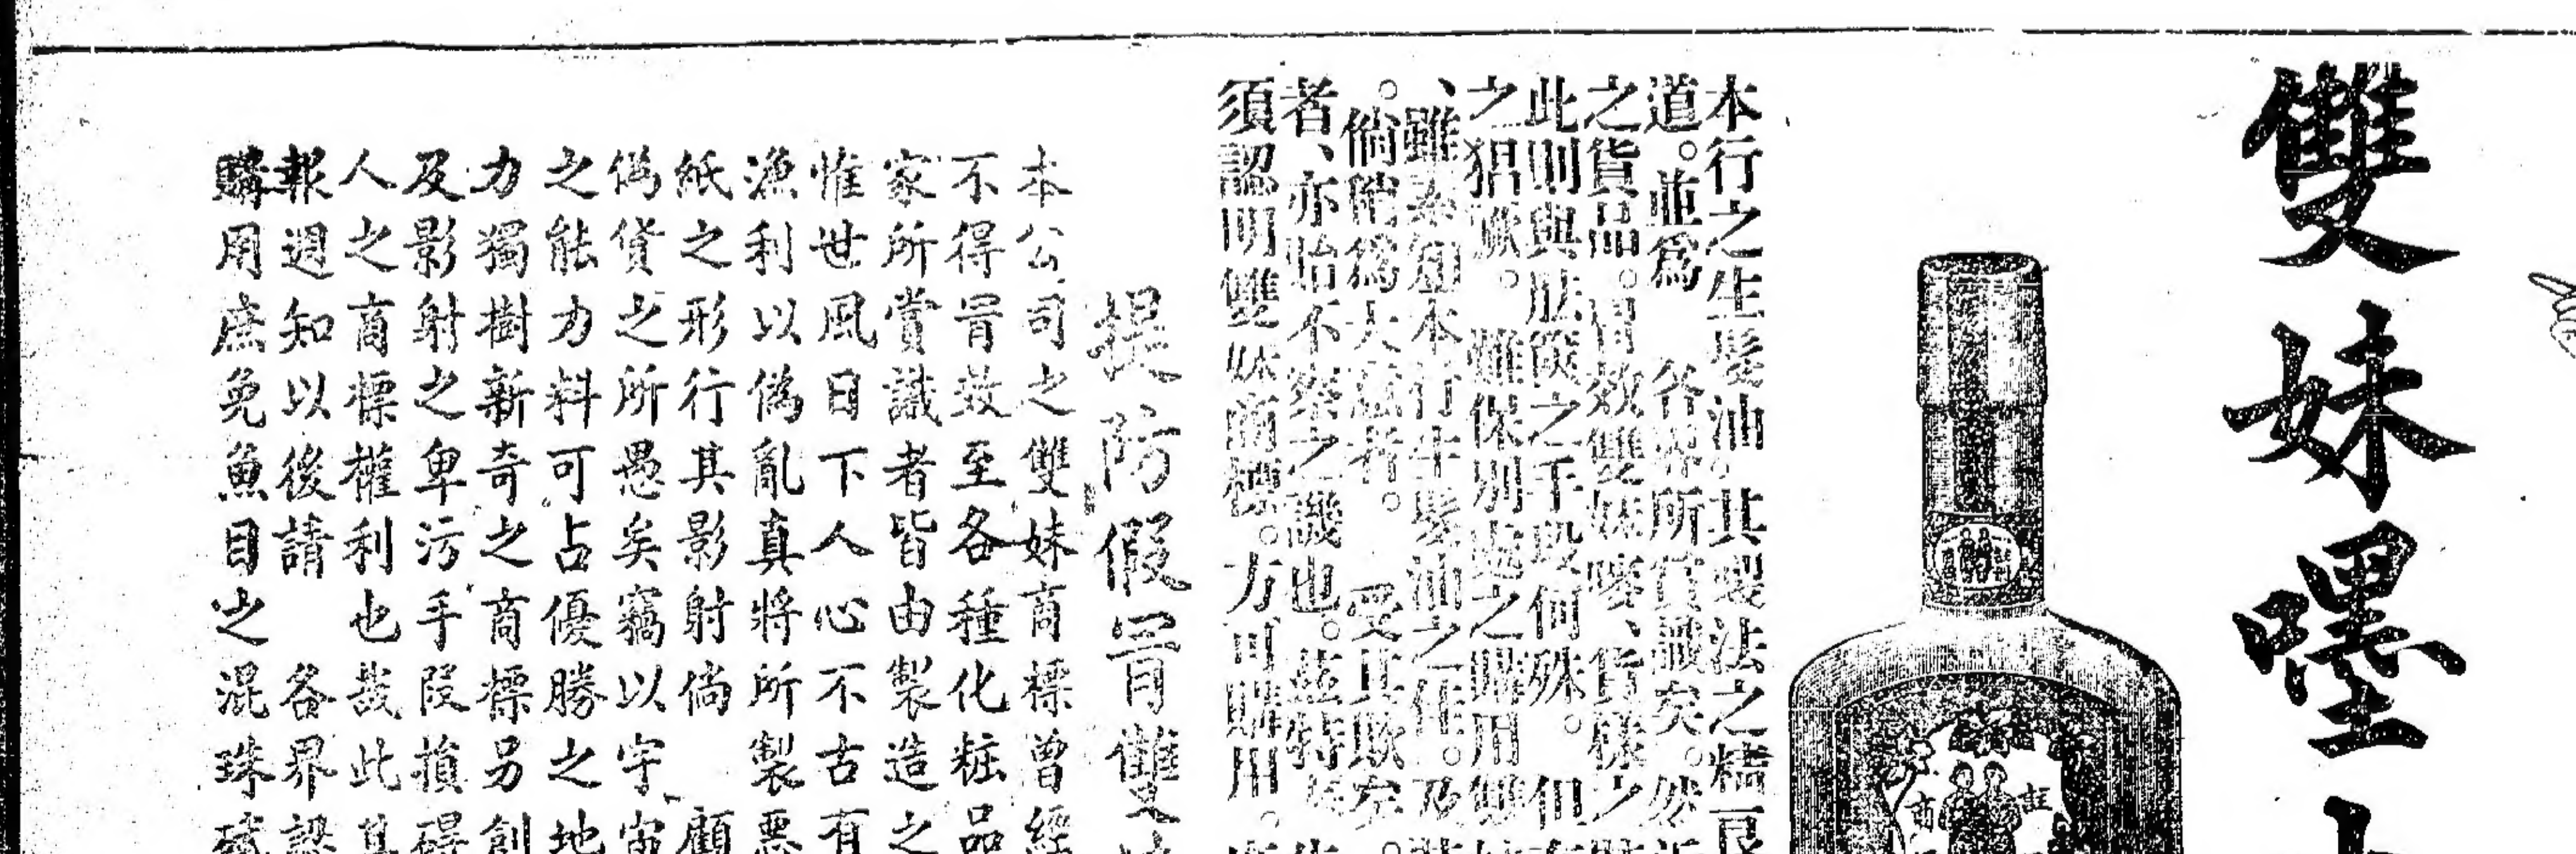 雙妹嚜
本行之生髮油。其製法之精良
道。並爲　各界所賞識矣。然近
之貨品。冒效雙妹嘜、貨樣之
此則與胠篋之手段何殊。　但
之猖獗。　難保別處之購用雙
、雖素知本行生髮油之佳。乃
。倘陗爲大意者。　受其欺左。
者、亦貽不察之譏也。茲特
須認明雙妹商標。方可購用。
提防假冒雙
本公司之雙妹商標曾經
不得冒效至各種化粧品
家所賞識者皆由製造之
惟世風日下人心不古有
漁利以偽亂真將所製惡
紙之形行其影射倘　顧
偽貨之所愚矣竊以宇宙
之能力料可占優勝之地
力獨樹新奇之商標另創
及影射之卑污手段損碍
人之商標權利也哉此其
報週知以後請　各界認
購用庶免魚目之混珠
商　註